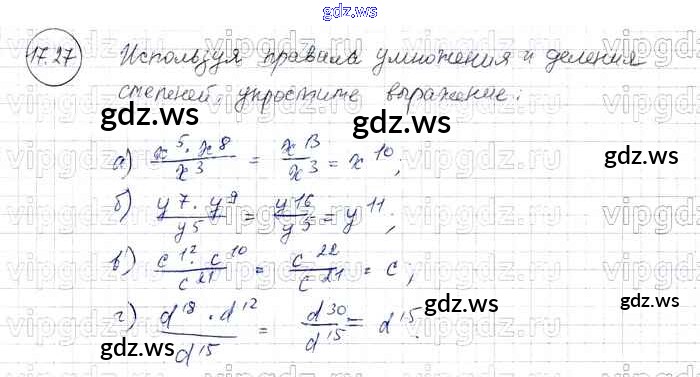 gdz.ws
17.27 Используя правила умножения и деления
степеней, упростите выражение:
gdz.ws gdz.ws gdz.ws
а) x^5 · x^8 / x^3 = x^13 / x^3 = x^10;
б) y^7 · y^9 / y^5 = y^16 / y^5 = y^11;
в) c^12 · c^10 / c^21 = c^22 / c^21 = c;
г) d^18 · d^12 / d^15 = d^30 / d^15 = d^15.
gdz.ws gdz.ws gdz.ws